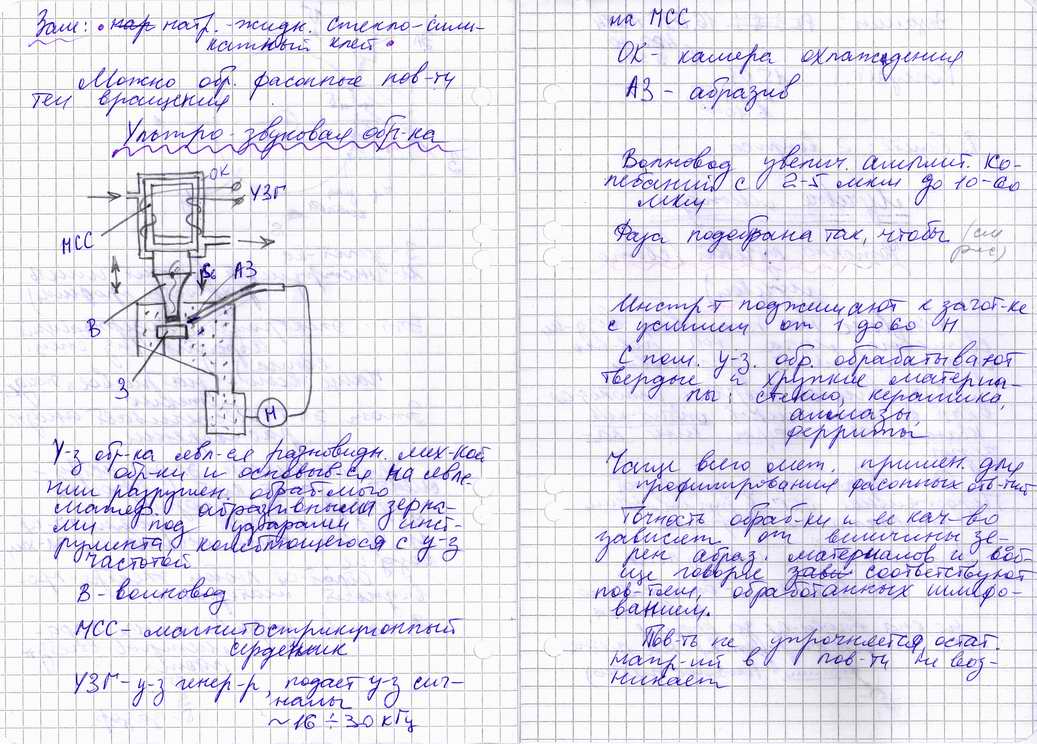 Зам: • нар натр. - жидк. стекло - сили-
катный клей •
Можно обр. фасонные пов-ти
тел вращения
Ультро-звуковая обр-ка
ОК
УЗГ
МСС
АЗ
В
З
Н
У-з обр-ка явл-ся разновидн. мех-кой
обр-ки и основыв-ся на явле-
нии разрушен. обраб-мого
матер. абразивными зерна-
ми под ударами инст-
румента, колеблющегося с у-з
частотой
В - волновод
МСС - магнитострикционный
сердечник
УЗГ - у-з генер-р, подает у-з сиг-
налы
~ 16 ÷ 30 кГц
на МСС
ОК - камера охлаждения
АЗ - абразив
Волновод увелич. амплит. ко-
лебаний с 2-5 мкм до 10-60
мкм
Фаза подобрана так, чтобы (см
рис)
Инстр-т поджимают к загот-ке
с усилием от 1 до 60 Н
С пом. у-з. обр. обрабатывают
твердые и хрупкие материа-
лы: стекло, керамика,
алмазы,
ферриты
Чаще всего мет. примен. для
профилирования фасонных отв-тий
Точность обраб-ки и ее кач-во
зависят от величины зе-
рен абраз. материалов и вооб-
ще говоря зави соответствуют
пов-тям, обработанных шлифо-
ванием.
Пов-ть не упрочняется, остат.
напр-ий в пов-ти не воз-
никает